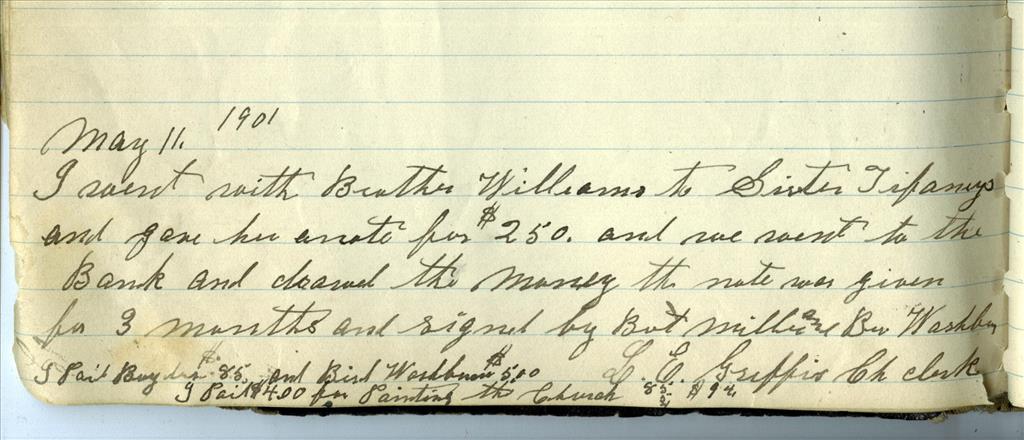 May 11. 1901
I went with Brother Williams to Sister Tifanys
and gave her a note for $250. and we went to the
Bank and drawed the money the note was given
for 3 months and signed by Brot Bro Washburn
I Paid $85. and Bird Washburn $5.00 L. E. Griffis Ch clerk
I Paid $4.00 for Painting the Church